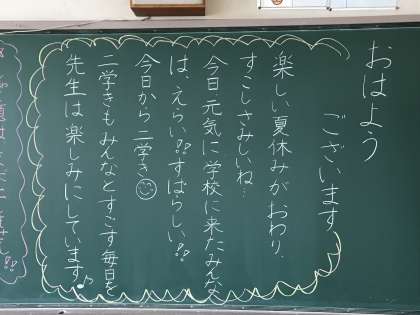 おはよう
ございます
楽しい夏休みがおわり.
すこしさみしいね…
今日 元気に 学校に来たみんな
は、えらい!!すばらしい!!
今日から 二学き
二学きもみんなとすごす毎日を
先生は楽しみにしています♪